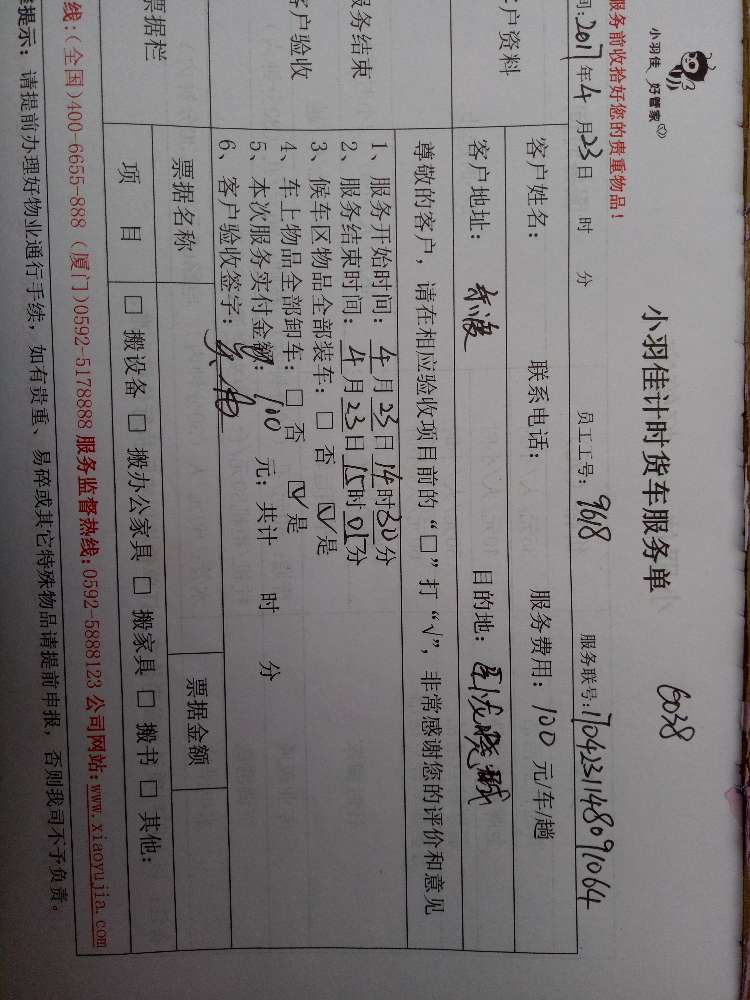 小羽佳 好管家
小羽佳计时货车服务单
6038
服务前收拾好您的贵重物品!
间:2017年4月23日 时 分 员工工号:9618 服务联号:1704231148091064
户资料 客户姓名: 联系电话: 服务费用:100元/车/趟
客户地址: 目的地:
尊敬的客户,请在相应验收项目前的“□”打“√”,非常感谢您的评价和意见
服务结束
客户验收
1、服务开始时间:4月23日14时30分
2、服务结束时间:4月23日15时01分
3、候车区物品全部装车:□ 否 ☑ 是
4、车上物品全部卸车:□ 否 ☑ 是
5、本次服务实付金额:100元;共计 时 分
6、客户验收签字:
票据栏 票据名称 票据金额
项 目 □ 搬设备 □ 搬办公家具 □ 搬家具 □ 搬书 □ 其他:
线:(全国)400-6655-888 (厦门)0592-5178888 服务监督热线:0592-5888123 公司网站:www.xiaoyujia.com
提示:请提前办理好物业通行手续,如有贵重、易碎或其它特殊物品请提前申报,否则我司不予负责。